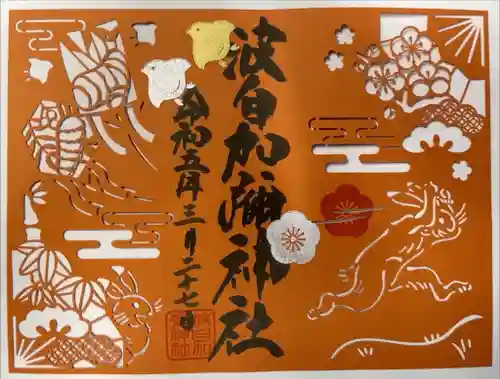 波自加彌神社
令和五年三月二十七日